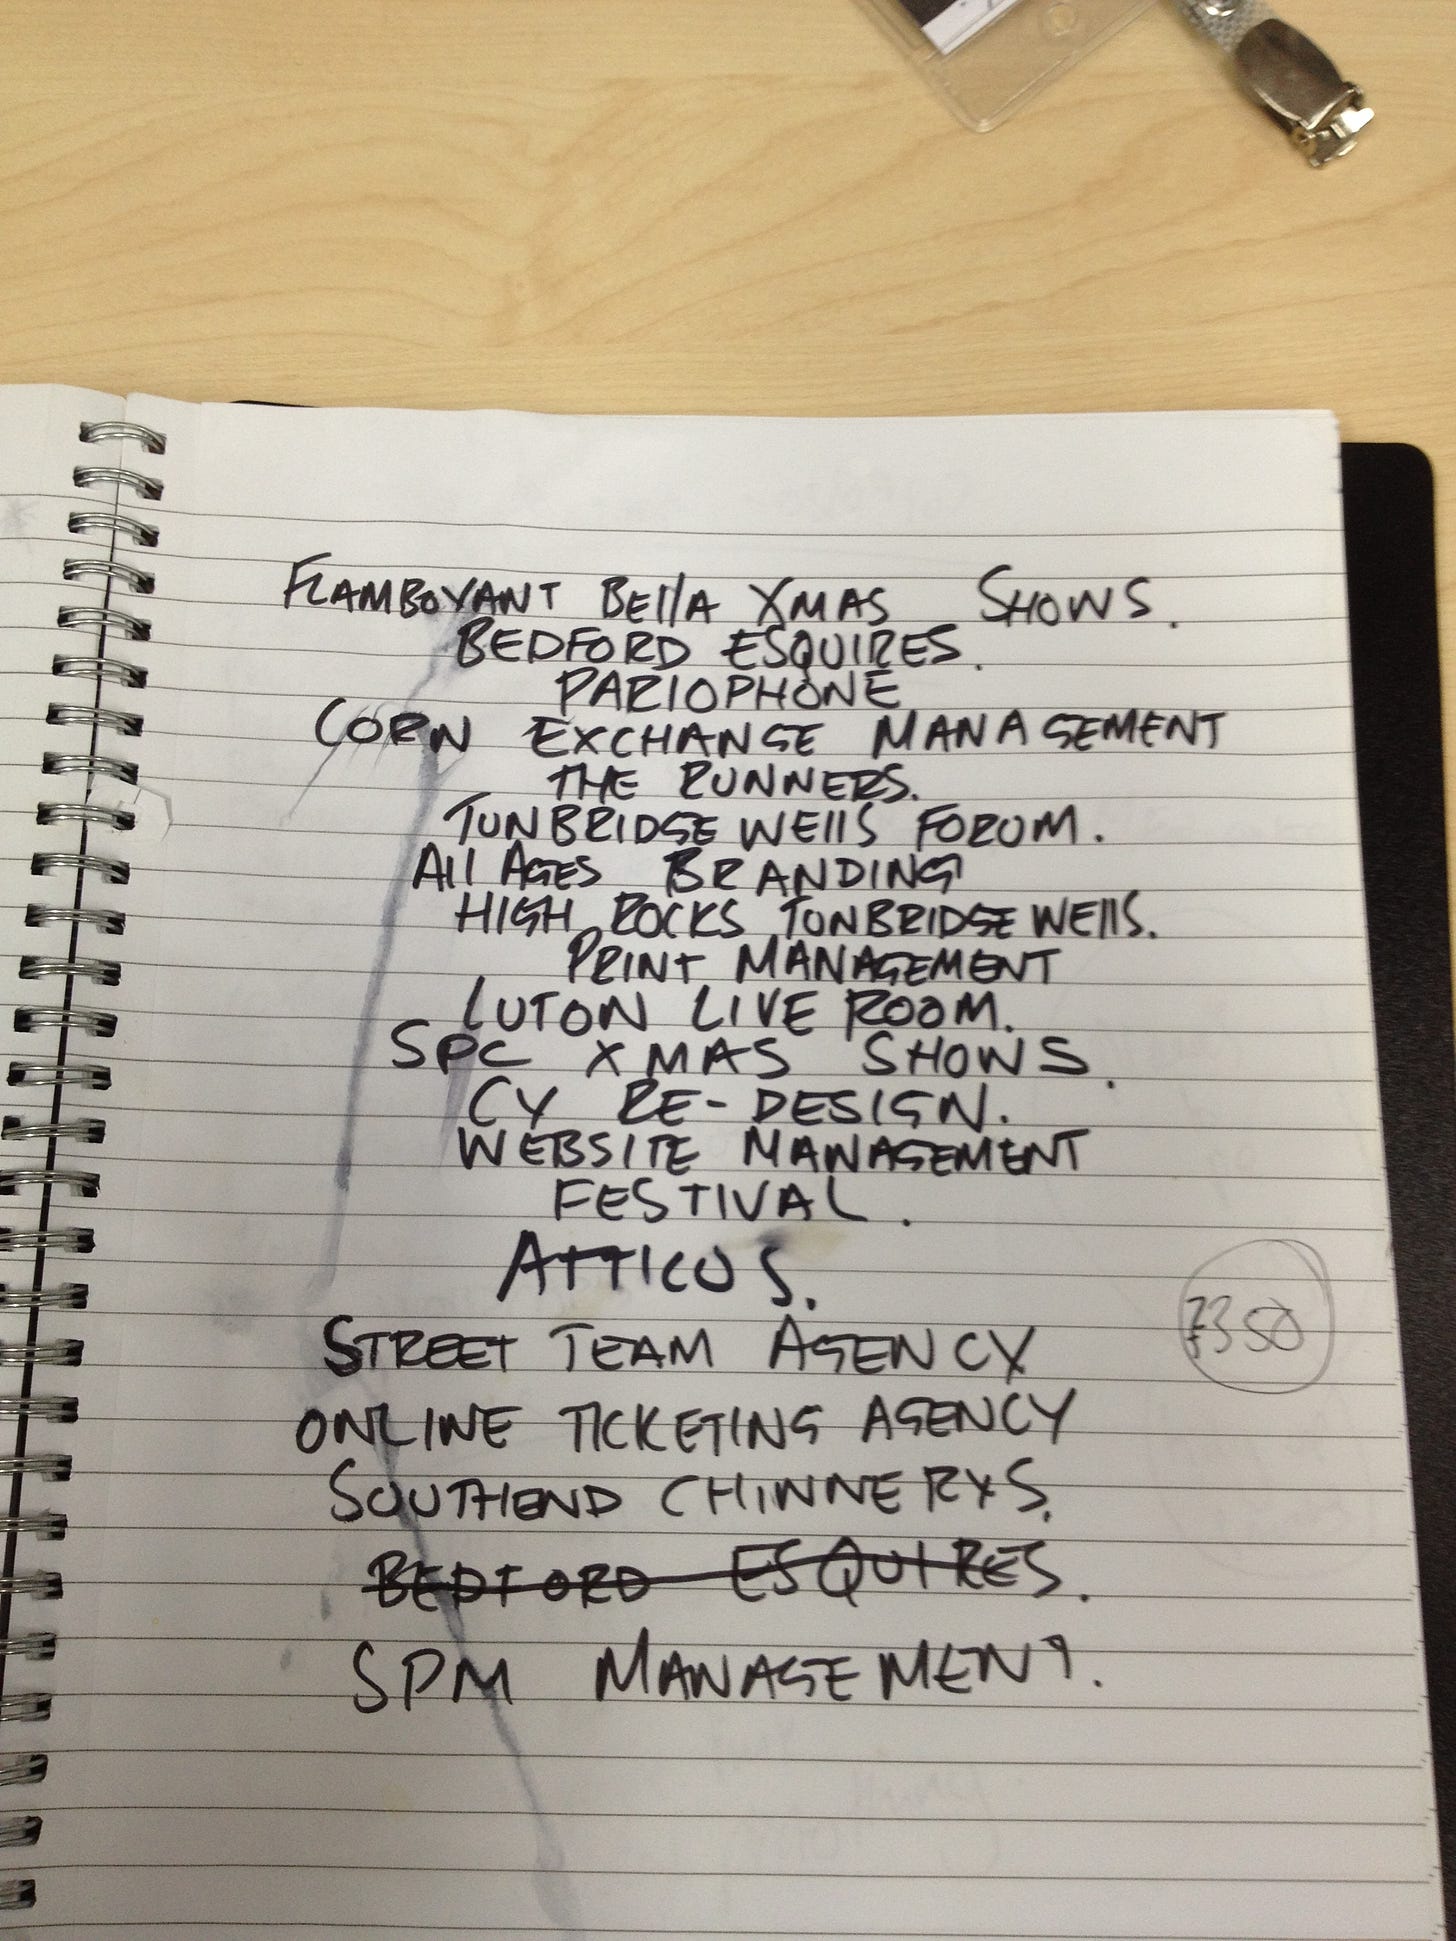 FLAMBOYANT BEllA XMAS SHOWS.
BEDFORD ESQUIRES.
PARLOPHONE
CORN EXCHANGE MANAGEMENT
THE RUNNERS.
TUNBRIDGE WEllS FORUM.
All AGES BRANDING
HIGH ROCKS TUNBRIDGE WEllS.
PRINT MANAGEMENT
LUTON LIVE ROOM.
SPC XMAS SHOWS.
CY RE-DESIGN.
WEBSITE MANAGEMENT
FESTIVAL.
ATTICUS.
STREET TEAM AGENCY
£350
ONLINE TICKETING AGENCY
SOUTHEND CHINNERYS.
BEDFORD ESQUIRES.
SPM MANAGEMENT.